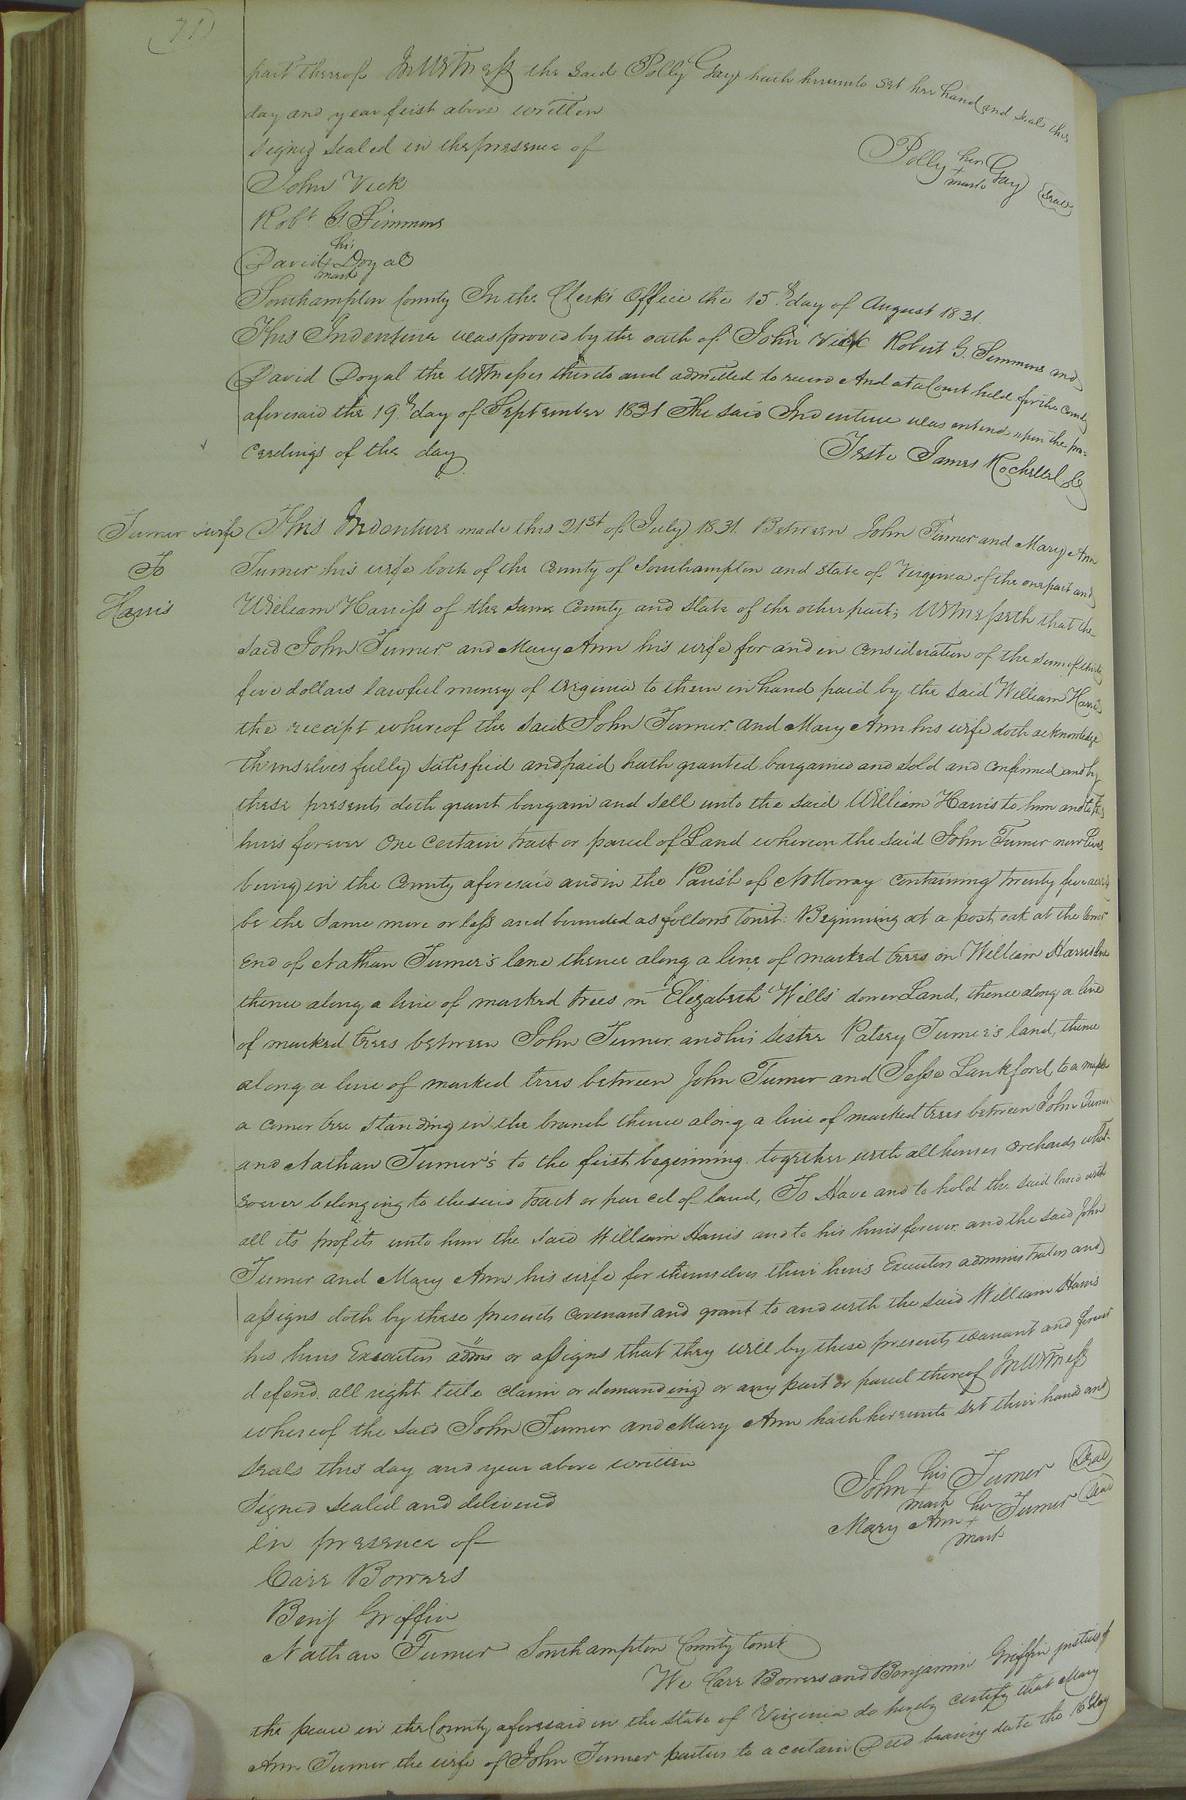 71
part thereof In Witness the said Polly Gay hath hereunto set her hand and seal this
day and year first above written
signed sealed in the presence of
Polly her + mark Gay (seal)
John Vick
Robt. G. Simmons
David his + mark Doyal
Southampton County In the Clerk's Office the 15th day of August 1831.
This Indenture was proved by the oath of John Vick Robert G. Simmons and
David Doyal the Witnesses thereto and admitted to record And at a Court held for the County
aforesaid the 19th day of September 1831 The said Indenture was entered upon the pro-
ceedings of the day
Teste James Rochelle Cc
Turner & wife
To
Harris
This Indenture made this 21st of July 1831. Between John Turner and Mary Ann
Turner his wife both of the County of Southampton and State of Virginia of the one part and
William Harriss of the same County and State of the other part; Witnesseth that the
said John Turner and Mary Ann his wife for and in consideration of the sum of
five dollars lawful money of Virginia to them in hand paid by the said William Harris
the receipt whereof the said John Turner and Mary Ann his wife doth acknowledge
themselves fully satisfied and paid hath granted bargained and sold and confirmed and by
these presents doth grant bargain and sell unto the said William Harris to him and to his
heirs forever One certain tract or parcel of Land whereon the said John Turner now lives
being in the County aforesaid and in the Parish of Nottoway containing twenty five acres
be the same more or less and bounded as follows Towit: Beginning at a post oak at the lower
end of Nathan Turner's lane thence along a line of marked trees on William Harris line
thence along a line of marked trees on Elizabeth Wills' dower Land, thence along a line
of marked trees between John Turner and his sister Patsey Turner's land, thence
along a line of marked trees between John Turner and Jesse Lankford, to a maple
a corner tree standing in the branch thence along a line of marked trees between John Turner
and Nathan Turner's to the first beginning. together with all houses orchards what-
soever belonging to the said tract or parcel of land, To Have and to hold the said land with
all its profits unto him the said William Harris and to his heirs forever and the said John
Turner and Mary Ann his wife for themselves their heirs Executors administrators and
assigns doth by these presents covenant and grant to and with the said William Harris
his heirs Executors admrs or assigns that they will by these presents warrant and forever
defend. all right title claim or demanding or any part or parcel thereof In Witness
whereof the said John Turner and Mary Ann hath hereunto set their hand and
seals this day and year above written
Signed sealed and delivered
in presence of
John his + mark Turner (Seal)
Mary Ann her + mark Turner (Seal)
Carr Bowers
Benj Griffin
Nathan Turner
Southampton County Towit
We Carr Bowers and Benjamin Griffin justices of
the peace in the County aforesaid in the State of Virginia do hereby certify that Mary
Ann Turner the wife of John Turner parties to a certain Deed bearing date the day